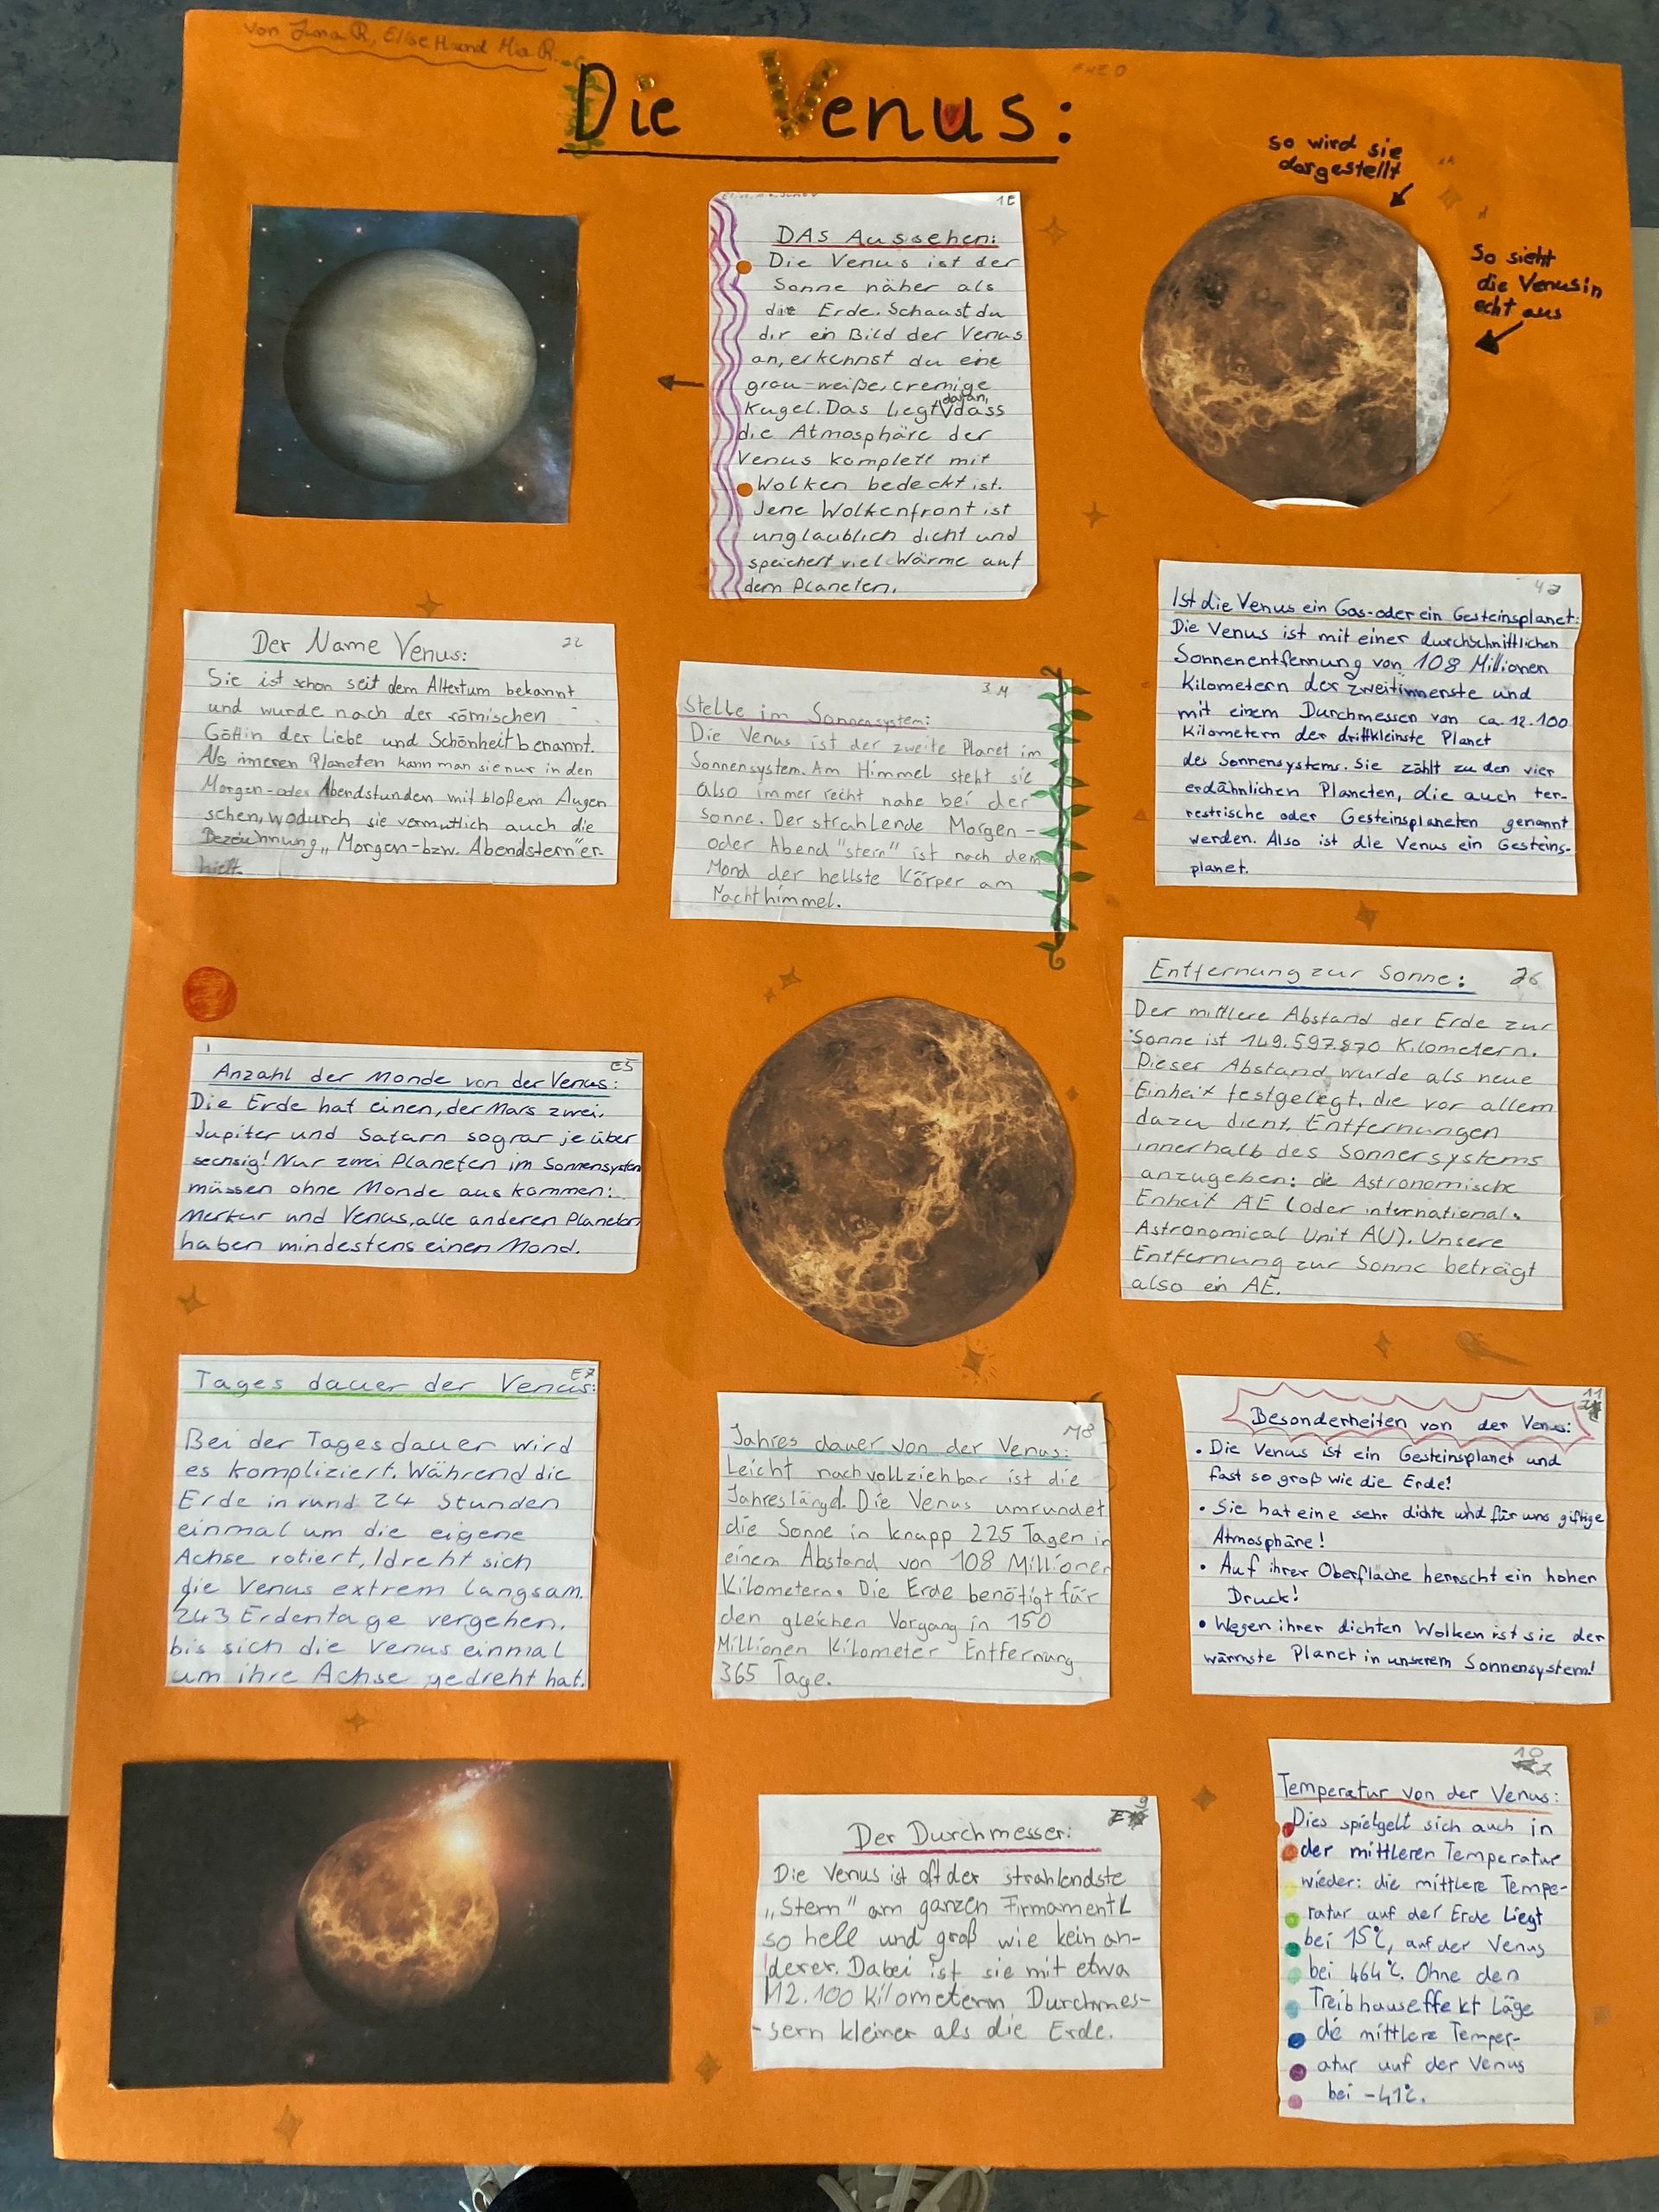 von Jana R, Elise H und Mia R.
Die Venus:
so wird sie
dargestellt
So sieht
die Venus in
echt aus
1E
DAS Aussehen:
Die Venus ist der
Sonne näher als
die Erde. Schaust du
dir ein Bild der Venus
an, erkennst du eine
grau-weiße, cremige
Kugel. Das liegt daran, dass
die Atmosphäre der
Venus komplett mit
Wolken bedeckt ist.
Jene Wolkenfront ist
unglaublich dicht und
speichert viel Wärme auf
dem Planeten.
Der Name Venus:
Sie ist schon seit dem Altertum bekannt
und wurde nach der römischen
Göttin der Liebe und Schönheit benannt.
Als inneren Planeten kann man sie nur in den
Morgen- oder Abendstunden mit bloßem Augen
sehen, wodurch sie vermutlich auch die
Bezeichnung „Morgen- bzw. Abendstern" er-
hielt.
3 M
Stelle im Sonnensystem:
Die Venus ist der zweite Planet im
Sonnensystem. Am Himmel steht sie
also immer recht nahe bei der
Sonne. Der strahlende Morgen-
oder Abend "stern" ist nach dem
Mond der hellste Körper am
Nachthimmel.
Ist die Venus ein Gas- oder ein Gesteinsplanet:
Die Venus ist mit einer durchschnittlichen
Sonnenentfernung von 108 Millionen
Kilometern der zweitinnerste und
mit einem Durchmessen von ca. 12.100
Kilometern der drittkleinste Planet
des Sonnensystems. Sie zählt zu den vier
erdähnlichen Planeten, die auch ter-
restrische oder Gesteinsplaneten genannt
werden. Also ist die Venus ein Gesteins-
planet.
E5
Anzahl der Monde von der Venus:
Die Erde hat einen, der Mars zwei,
Jupiter und Saturn sograr je über
sechsig! Nur zwei Planeten im Sonnensystem
müssen ohne Monde aus kommen:
Merkur und Venus, alle anderen Planeten
haben mindestens einen Mond.
Entfernung zur Sonne:
Der mittlere Abstand der Erde zur
Sonne ist 149.597.870 Kilometern.
Dieser Abstand wurde als neue
Einheit festgelegt, die vor allem
dazu dient, Entfernungen
innerhalb des Sonnersystems
anzugeben: die Astronomische
Enheit AE (oder international.
Astronomical Unit AU). Unsere
Entfernung zur Sonne beträgt
also ein AE.
E7
Tages dauer der Venus:
Bei der Tagesdauer wird
es kompliziert. Während die
Erde in rund 24 Stunden
einmal um die eigene
Achse rotiert, dreht sich
die Venus extrem langsam.
243 Erdentage vergehen,
bis sich die Venus einmal
um ihre Achse gedreht hat.
M8
Jahres dauer von der Venus:
Leicht nachvollziehbar ist die
Jahreslänge. Die Venus umrundet
die Sonne in knapp 225 Tagen in
einem Abstand von 108 Millionen
Kilometern. Die Erde benötigt für
den gleichen Vorgang in 150
Millionen Kilometer Entfernung
365 Tage.
11
Besonderheiten von der Venus:
• Die Venus ist ein Gesteinsplanet und
fast so groß wie die Erde!
• Sie hat eine sehr dichte und für uns giftige
Atmosphäre!
• Auf ihrer Oberfläche herrscht ein hoher
Druck!
• Wegen ihrer dichten Wolken ist sie der
wärmste Planet in unserem Sonnensystem!
9
Der Durchmesser:
Die Venus ist oft der strahlendste
„Stern" am ganzen Firmament
so hell und groß wie kein an-
derer. Dabei ist sie mit etwa
12.100 Kilometern Durchmes-
-sern kleiner als die Erde.
10
Temperatur von der Venus:
Dies spielgelt sich auch in
der mittleren Temperatur
wieder: die mittlere Tempe-
ratur auf der Erde Liegt
bei 15°C, auf der Venus
bei 464°C. Ohne den
Treibhauseffekt Läge
die mittlere Temper-
atur auf der Venus
bei -41°C.